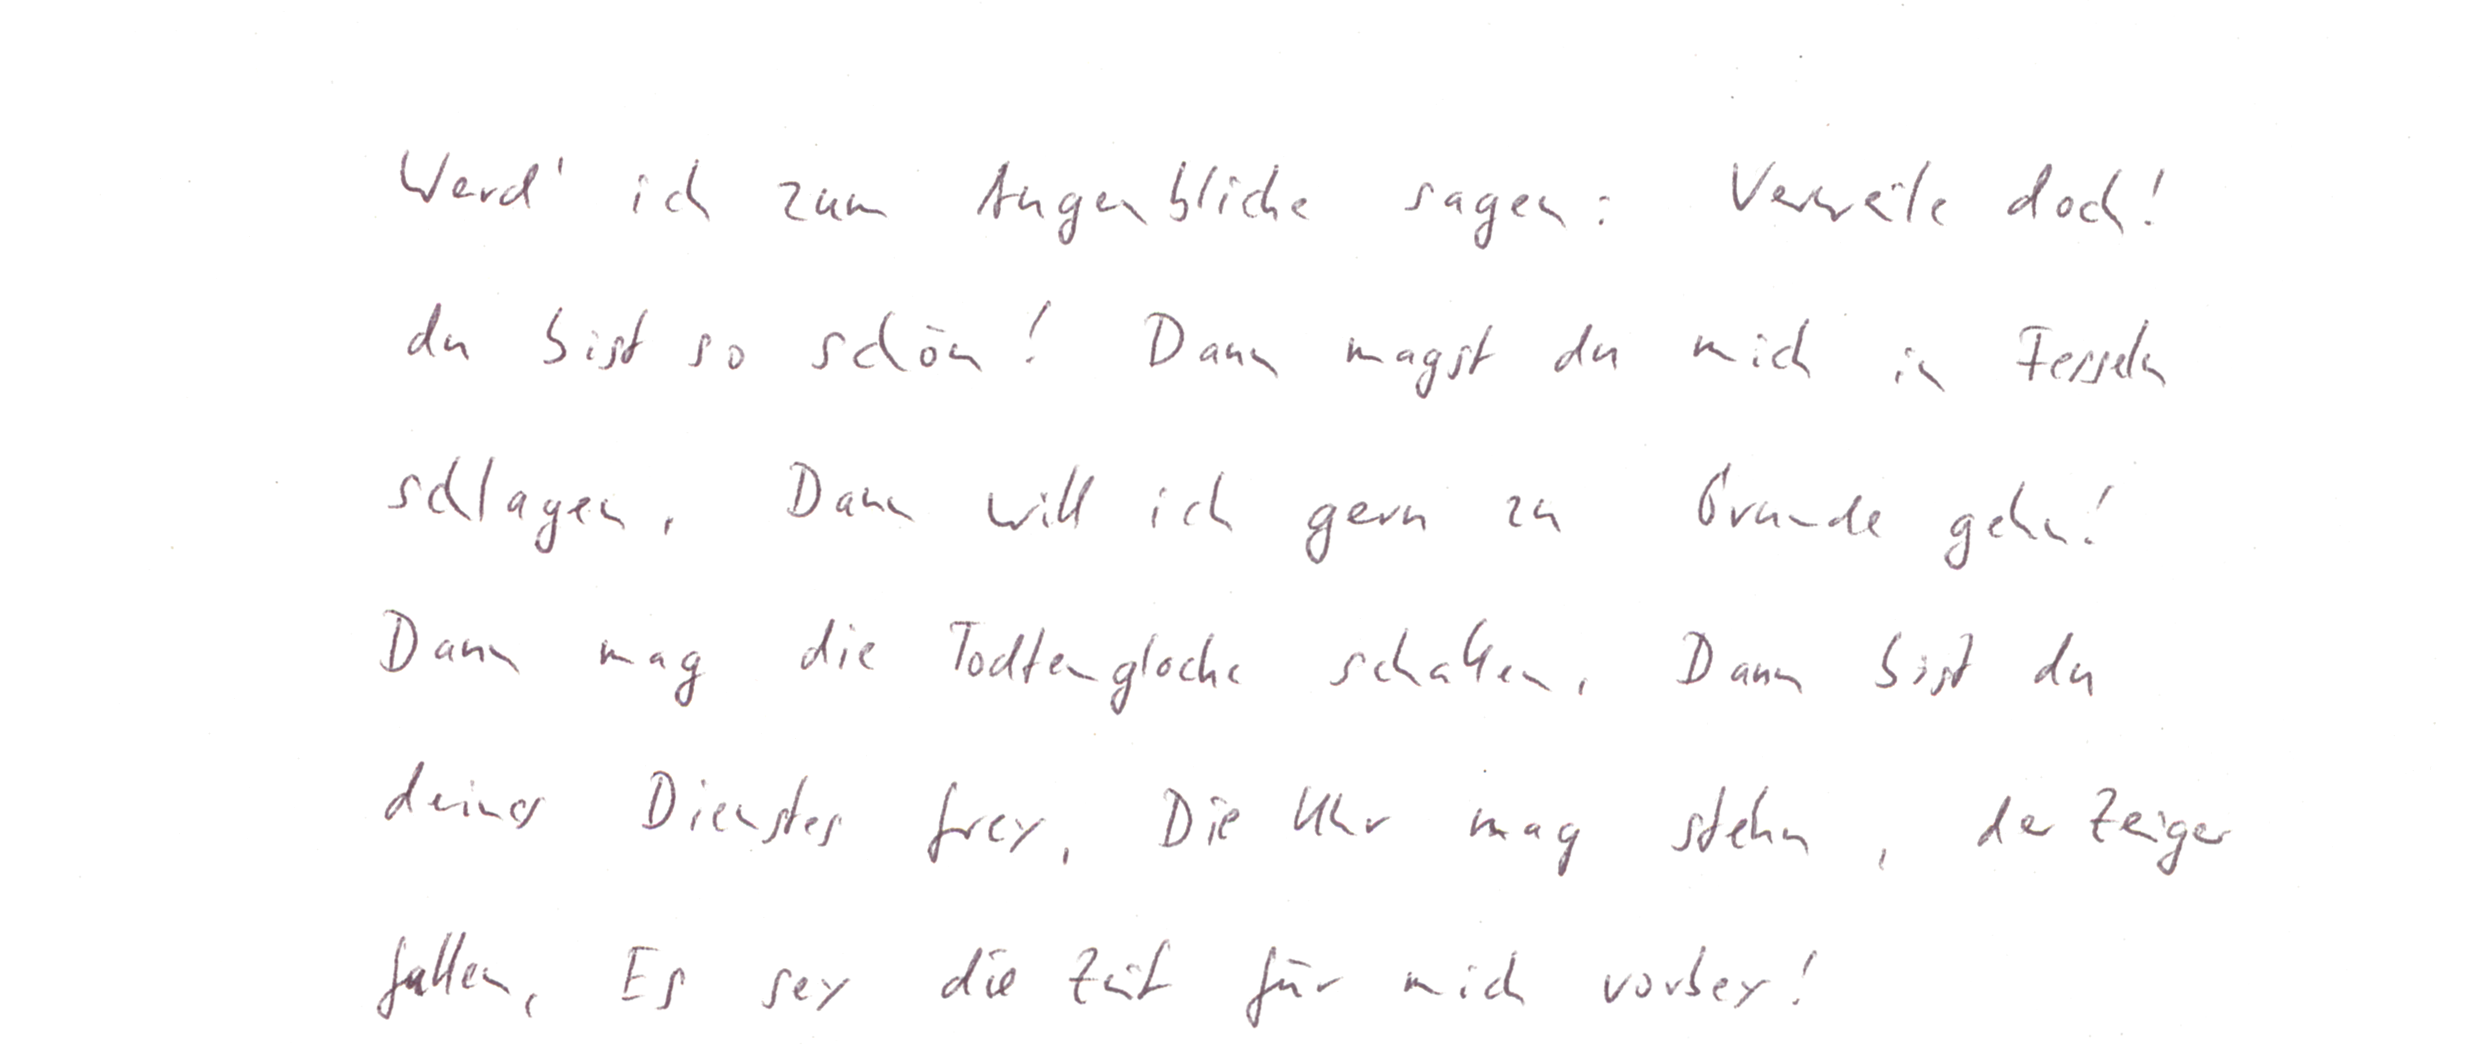 Werd' ich zum Augenblicke sagen: Verweile doch!
du bist so schön! Dann magst du mich in Fesseln
schlagen, Dann will ich gern zu Grunde gehn!
Dann mag die Todtenglocke schallen, Dann bist du
deines Dienstes frey, Die Uhr mag stehn, der Zeiger
fallen, Es sey die Zeit für mich vorbey!